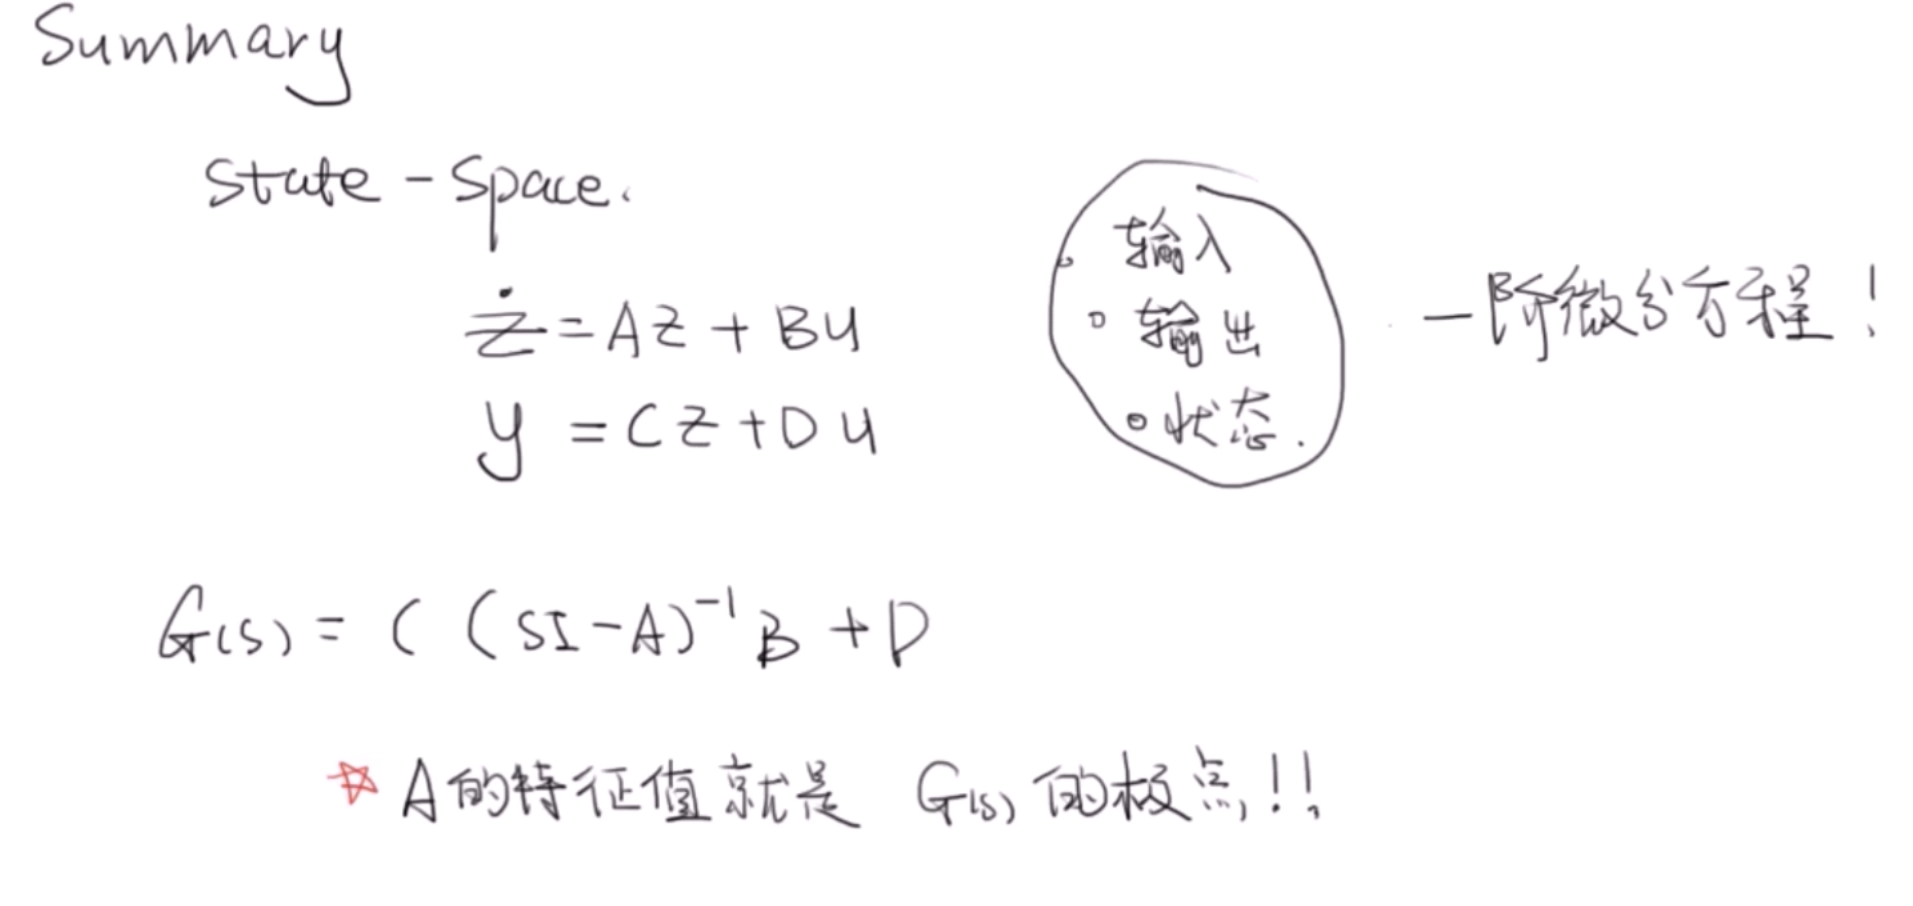 Summary
State-Space.
ż = Az + Bu
y = Cz + Du
输入
输出
状态.
一阶微分方程!
G(s) = C (SI-A)⁻¹ B + D
☆ A的特征值就是 G(s) 的极点!!